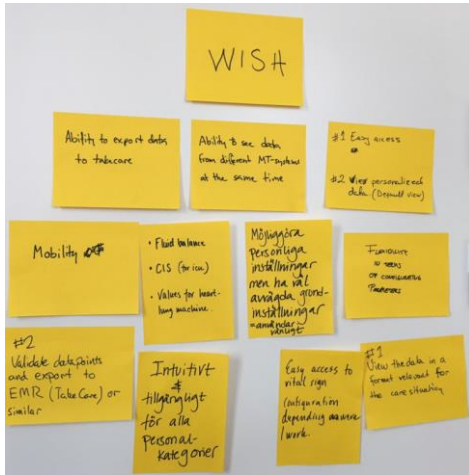 WISH
Ability to export data
to takecare
Ability to see data
from different MT-systems
at the same time
#1 Easy access
#2 View personalized
data (Default view)
Mobility
• Fluid balance
• CIS (for icu)
• Values for heart-
lung machine.
Möjliggöra
personliga
inställningar
men ha väl
avvägda grund-
inställningar
=användar
vänligt
OF
PROBLEMS
#2
Validate datapoints
and export to
EMR (TakeCare) or
similar
Intuitivt
&
tillgängligt
för alla
personal-
kategorier
Easy access to
vital sign
configuration
depending
/work.
#1
View the data in a
format relevant for
the care situation